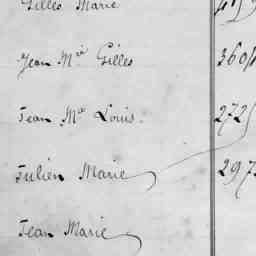 Gilles Marie
Jean Mie Gilles 360
Jean Me Louis. 272
Julien Marie 297
Jean Marie